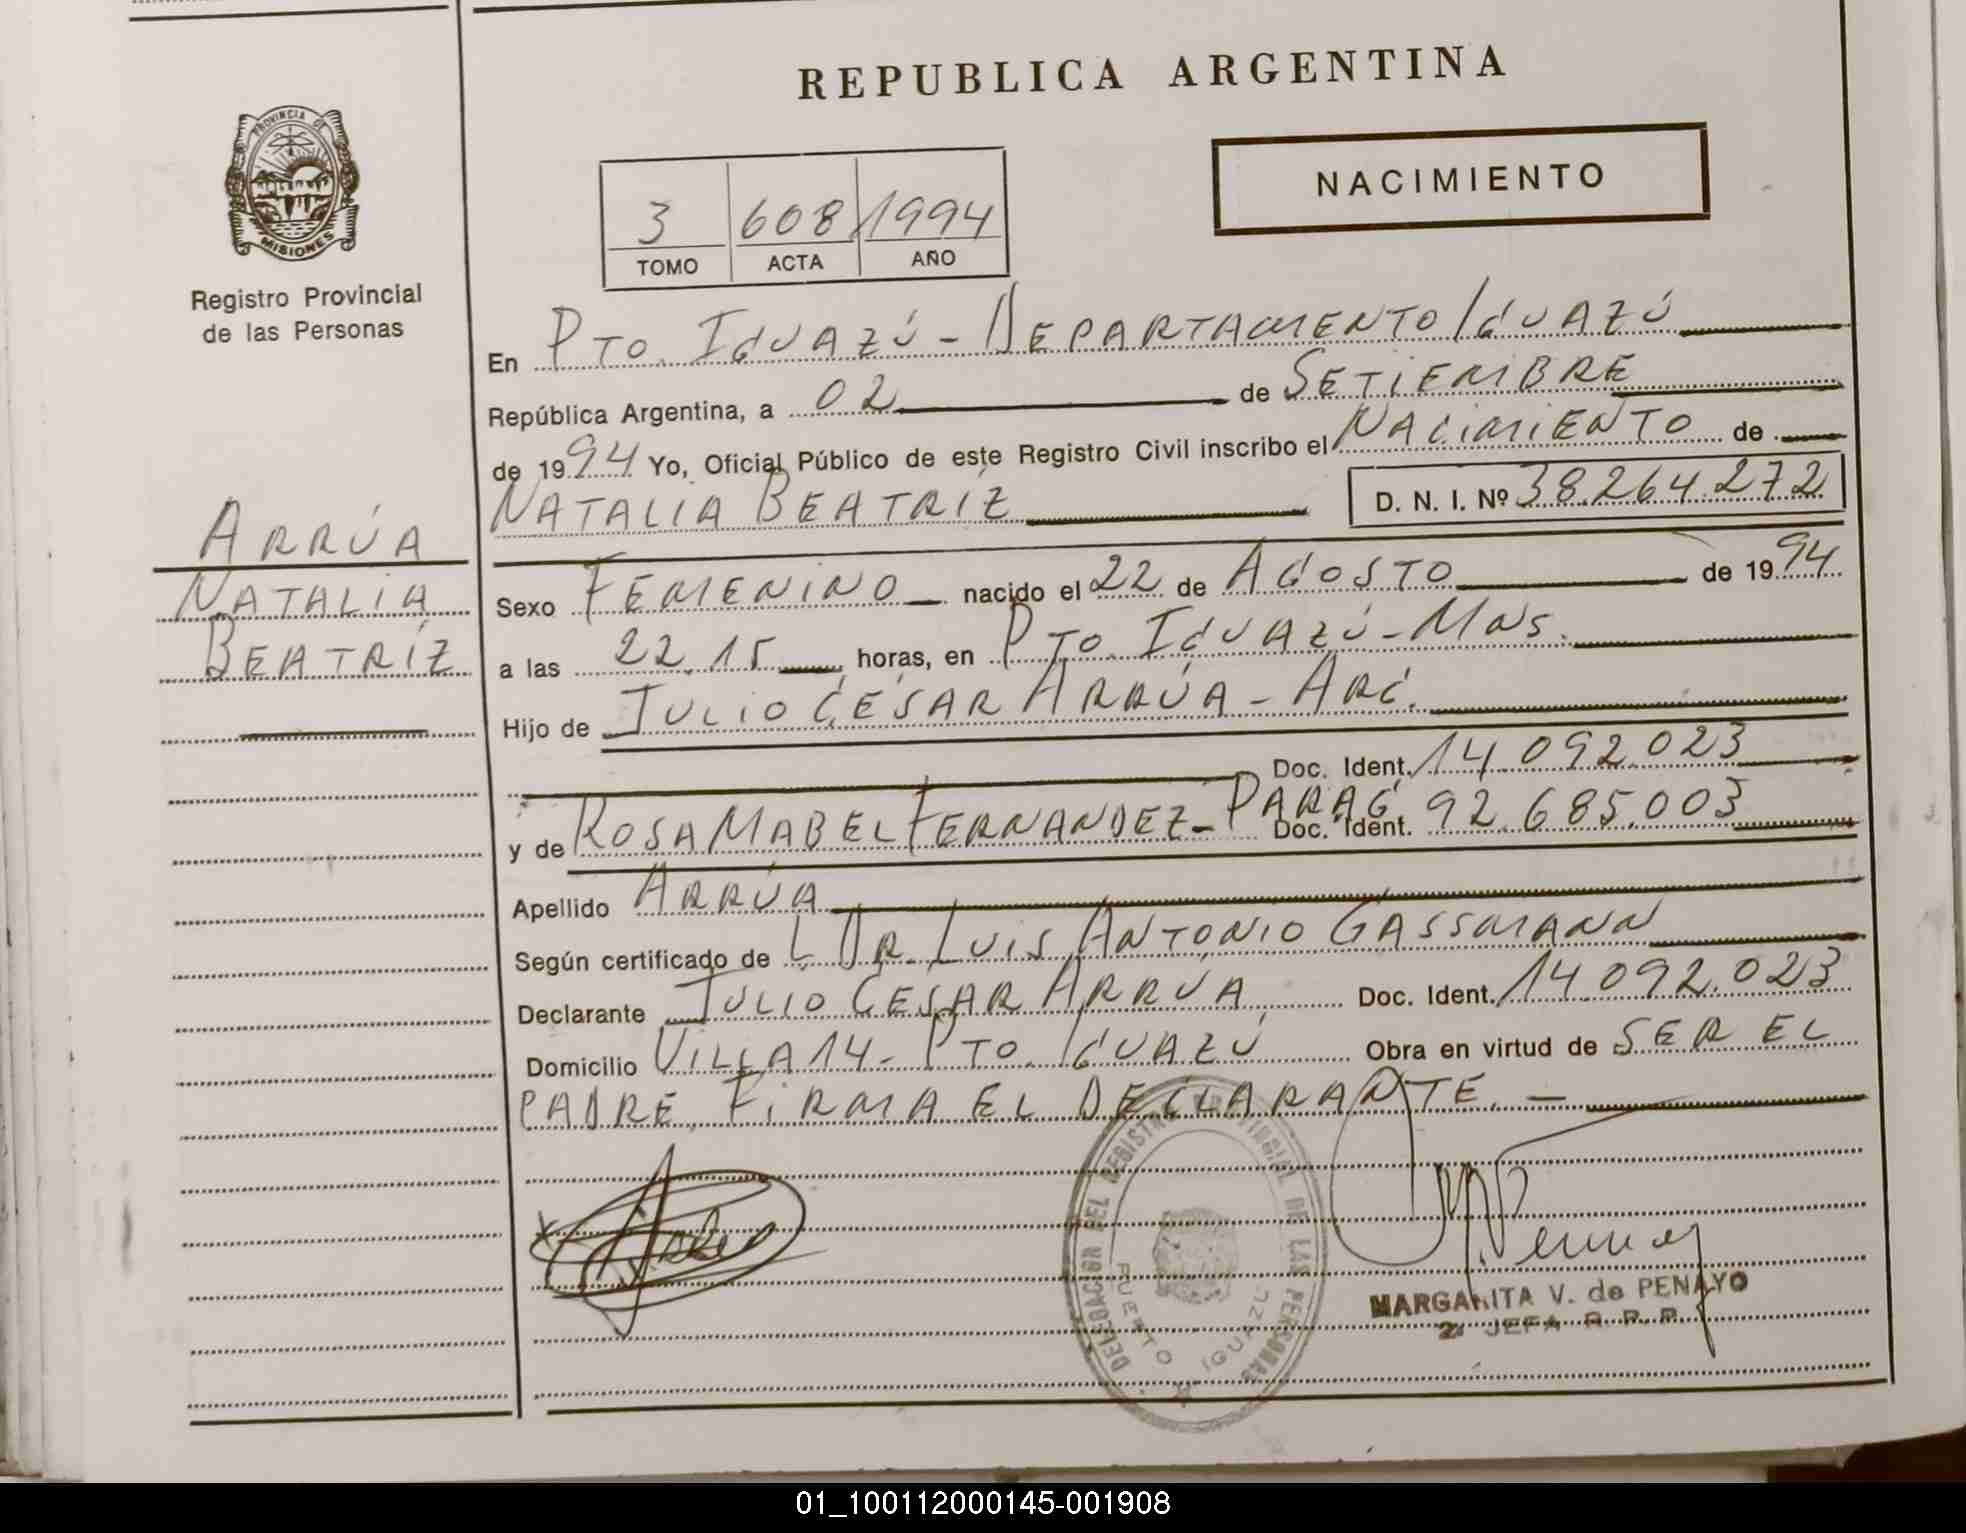 REPUBLICA ARGENTINA
PROVINCIA DE
MISIONES
Registro Provincial
de las Personas
NACIMIENTO
3 608 1994
TOMO ACTA AÑO
En PTO. IGUAZÚ - DEPARTAMENTO IGUAZÚ
República Argentina, a 02 de SETIEMBRE
de 1994 Yo, Oficial Público de este Registro Civil inscribo el NACIMIENTO de
NATALIA BEATRÍZ D. N. I. Nº 38.264.272
ARRÚA
NATALIA
BEATRÍZ
Sexo FEMENINO nacido el 22 de AGOSTO de 1994
a las 22.15 horas, en PTO. IGUAZÚ - MNS.
Hijo de JULIO CÉSAR ARRÚA - ARG.
Doc. Ident. 14.092.023
y de ROSA MABEL FERNANDEZ - PARAG. Doc. Ident. 92.685.003
Apellido ARRÚA
Según certificado de DR. LUIS ANTONIO GASSMANN
Declarante JULIO CESAR ARRÚA Doc. Ident. 14.092.023
Domicilio VILLA 14 - PTO. IGUAZÚ Obra en virtud de SER EL
PADRE. FIRMA EL DECLARANTE. -
DELEGACION DEL REGISTRO PROVINCIAL DE LAS PERSONAS
PUERTO IGUAZU
MARGARITA V. de PENAYO
2ª JEFA R. P. P.
01_100112000145-001908